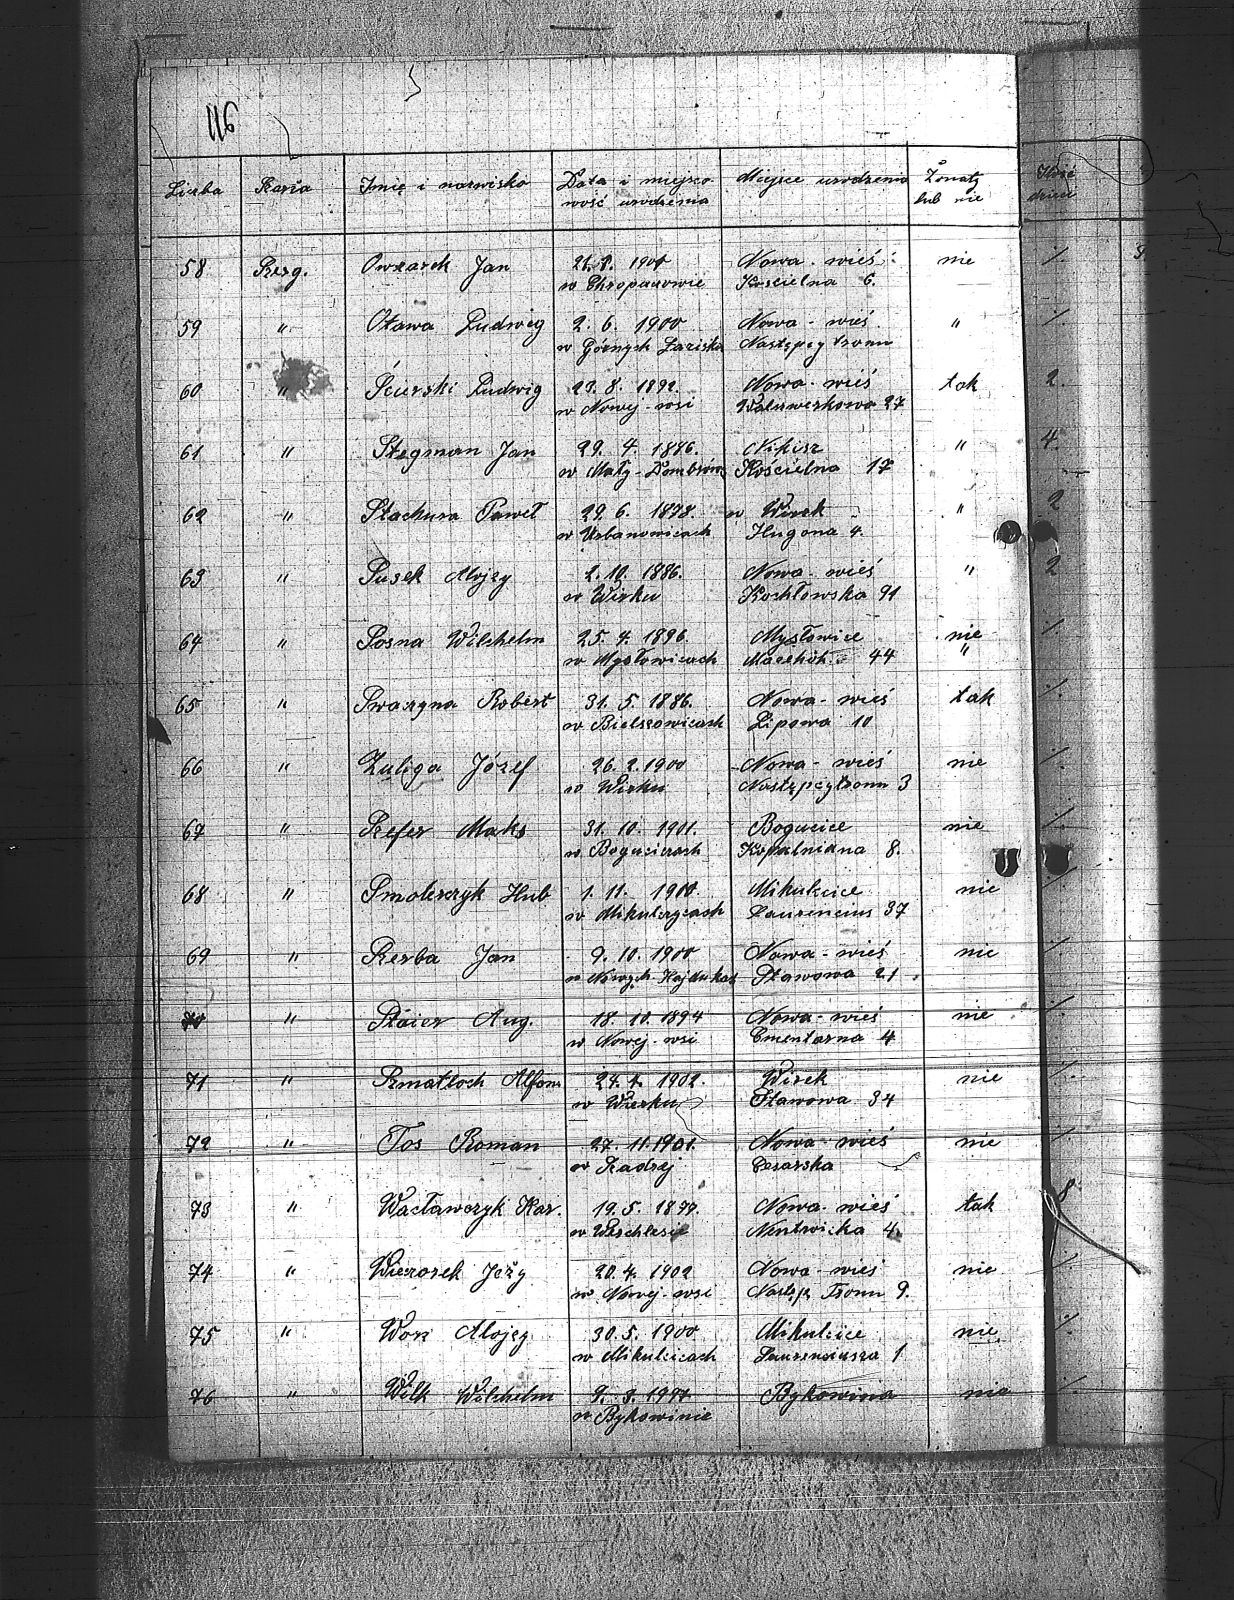 116
Liczba Szarża Imię i nazwisko Data i miejsco Miejsce urodzenia Żonaty Ilość
wość urodzenia lub nie dzieci
58 Szerg. Owzarek Jan 1901 Nowa-wieś nie /.
w Chropaczowie Kościelna 6.
59 " Otawa Ludwig 2. 6. 1900 Nowa-wieś " /.
w Górnych Łaziska Następcy tronu
60 " Ścurski Ludwig 23. 8. 1892. Nowa-wieś tak 2.
w Nowej-wsi 27
61 " Stegman Jan 29. 4. 1886. Nikisz " 4.
w Mały-Dombrów Kościelna 17
62 " Stachura Paweł 29. 6. 1878. w Wirek " 2
w Urbanowicach Hugona 4.
63 " Susek Alojzy 2. 10. 1886. Nowa-wieś " 2
w Wirku Kochłowska 91
64 " Sosna Wilhelm 25. 4. 1896. Mysłowice nie /.
w Mysłowicach 44 "
65 " Swazyna Robert 31. 5. 1886. Nowa-wieś tak /.
w Bielszowicach Lipowa 10
66 " Zuliga Józef 26. 2. 1900 Nowa-wieś nie /.
w Wirku Następcy tronu 3
67 " Szefer Maks 31. 10. 1901. Bogucice nie /.
w Bogucicach Kopalniana 8.
68 " Smolorzyk Hub 1. 11. 1900. Mikulcice nie /
w Mikulczycach Laurencius 37
69 " Szerba Jan 9. 10. 1900 Nowa-wieś nie /.
w Nowych Hajdukas Stawowa 21.
70 " Stoier Aug. 18. 10. 1894 Nowa-wieś nie /.
w Nowej-wsi Cmentarna 4
71 " Szmatloch Alfons 1902. Wirek nie /
w Wirku Stawowa 34
72 " Tos Roman 27. 11. 1901. Nowa-wieś nie /
w Cesarska
73 " Wacławczyk Kar. 19. 5. 1877. Nowa-wieś tak 8
w 4.
74 " Wieczorek Jeży 20. 4. 1902 Nowa-wieś nie /
w Nowej-wsi Następ. Tronu 9.
75 " Won Alojzy 30. 5. 1900 Mikulcice nie /.
w Mikulcicach Laurenciusza 1
76 " Wilk Wilhelm 9. 3. Bykowina nie /.
w Bykowinie